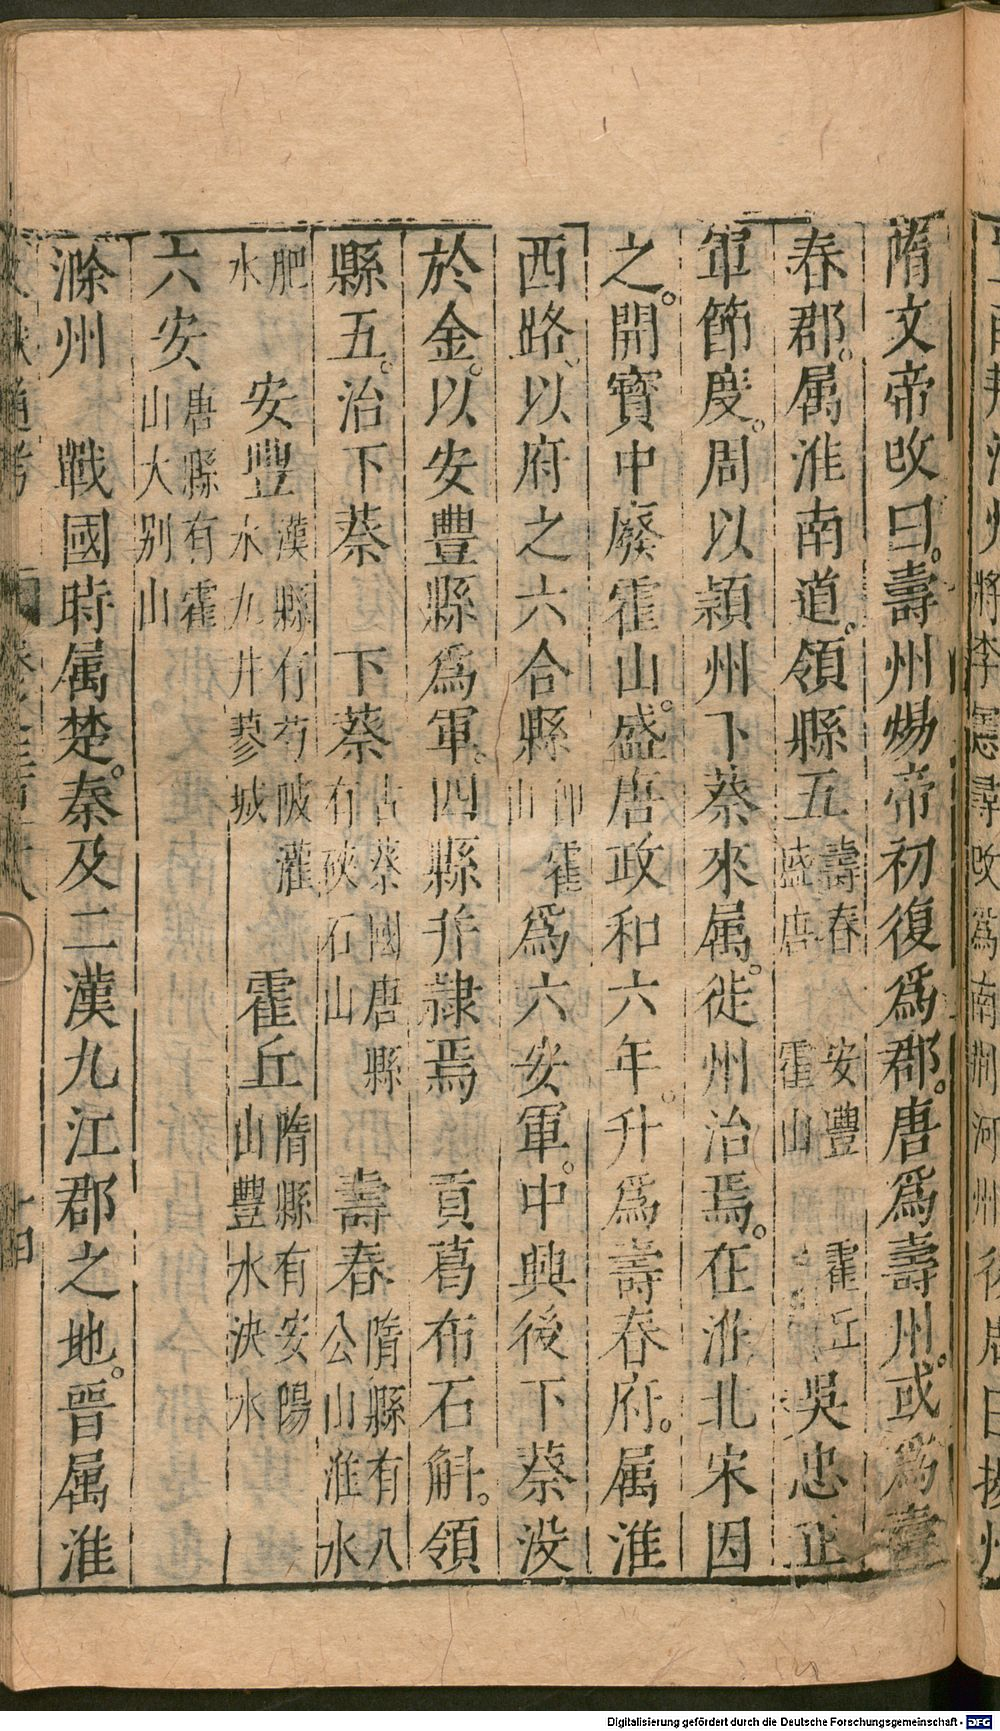 隋文帝改曰。壽州煬帝初復爲郡。唐爲壽州。或爲壽
春郡。属淮南道。領縣五壽春盛唐 安豐霍山 霍丘吳忠正
軍節度。周以潁州下蔡來属。徙州治焉。在淮北宋因
之。開寶中廢霍山。盛唐政和六年。升爲壽春府。属淮
西路、以府之六合縣卽霍山爲六安軍。中興後下蔡没
於金。以安豐縣爲軍。四縣并隷焉 貢葛布石斛。領
縣五。治下蔡 下蔡古蔡國唐縣有硤石山 壽春隋縣有八公山淮水
肥水 安豐漢縣有芍陂灌水九井蓼城 霍丘隋縣有安陽山豐水決水
六安唐縣有霍山大别山
滁州 戰國時属楚。秦及二漢九江郡之地。晉属淮
Digitalisierung gefördert durch die Deutsche Forschungsgemeinschaft - DFG